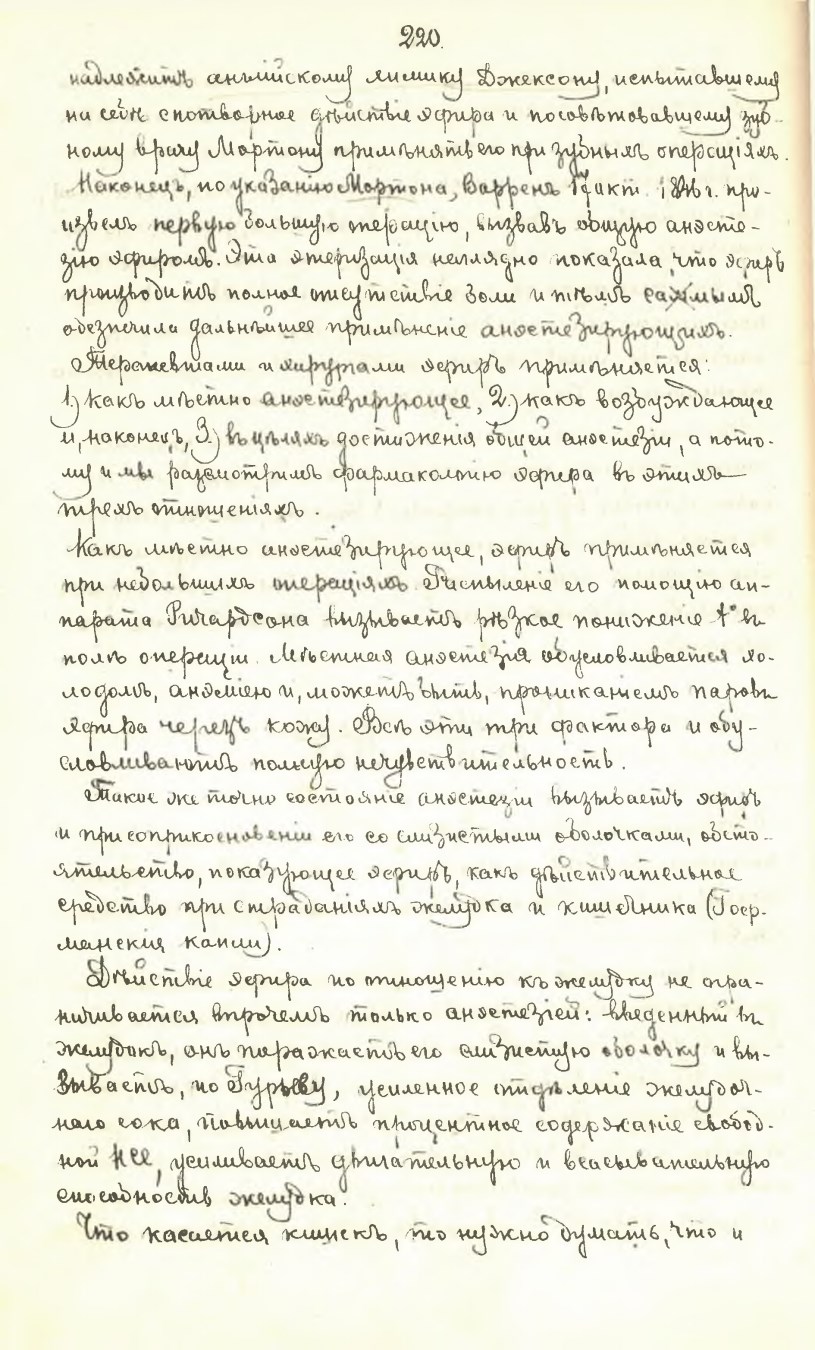 220.
надлежитъ англійскому химику Джексону, испытавшему
на себѣ снотворное дѣйствіе эфира и посовѣтовавшему зуб-
ному врачу Мортону примѣнять его при зубныхъ операціяхъ.
Наконецъ, по указанію Мортона, Варренъ 17 окт. 1846 г. про-
извелъ первую большую операцію, вызвавъ общую анэсте-
зію эфиромъ. Эта этеризація наглядно показала, что эфиръ
производитъ полное отсутствіе боли и тѣмъ самымъ
обезпечила дальнѣйшее примѣненіе анэстезирующихъ.
Терапевтами и хирургами эфиръ примѣняется:
1) какъ мѣстно анэстезирующее, 2) какъ возбуждающее
и, наконецъ, 3) въ цѣляхъ достиженія общей анэстезіи, а пото-
му и мы разсмотримъ фармакологію эфира въ этихъ
трехъ отношеніяхъ.
Какъ мѣстно анэстезирующее, эфиръ примѣняется
при небольшихъ операціяхъ. Распыленіе его помощію ап-
парата Ричардсона вызываетъ рѣзкое пониженіе t° въ
полѣ операціи. Мѣстная анэстезія обусловливается хо-
лодомъ, анэміею и, можетъ быть, прониканіемъ паровъ
эфира черезъ кожу. Всѣ эти три фактора и обу-
словливаютъ полную нечувствительность.
Такое же точно состояніе анэстезіи вызываетъ эфиръ
и при соприкосновеніи его со слизистыми оболочками, обсто-
ятельство, показующее эфиръ, какъ дѣйствительное
средство при страданіяхъ желудка и кишечника (Гофф-
манскія капли).
Дѣйствіе эфира по отношенію къ желудку не огра-
ничивается впрочемъ только анэстезіей: введенный въ
желудокъ, онъ поражаетъ его слизистую оболочку и вы-
зываетъ, по Гурьеву, усиленное отдѣленіе желудоч-
наго сока, повышаетъ процентное содержаніе свобод-
ной HCl, усиливаетъ двигательную и всасывательную
способность желудка.
Что касается кишекъ, то нужно думать, что и